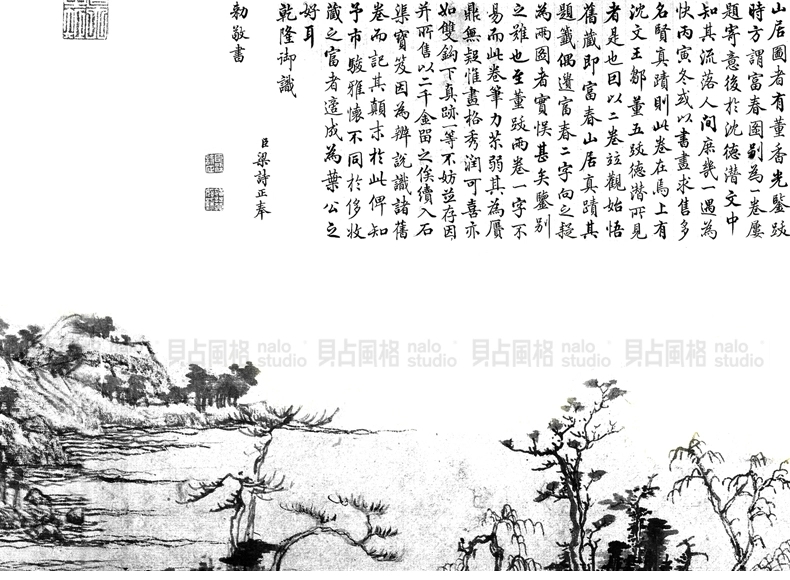 山居圖者有董香光鑒跋
時方謂富春圖別為一卷屢
題寄意後於沈德潛文中
知其流落人間庶幾一遇為
快丙寅冬或以書畫求售多
名賢真蹟則此卷在焉上有
沈文王鄒董五跋德潛所見
者是也因以二卷並觀始悟
舊藏即富春山居真蹟其
題籤偶遺富春二字向之疑
為兩圖者實悮甚矣鑒別
之難也至董跋兩卷一字不
易而此卷筆力苶弱其為贋
鼎無疑惟畫格秀潤可喜亦
如雙鈎下真跡一等不妨並存因
并所售以二千金留之俟續入石
渠寶笈因為辨說識諸舊
卷而記其顛末於此俾知
予市駿雅懷不同於侈收
藏之富者適成為葉公之
好耳
乾隆御識
臣梁詩正奉
勑敬書
貝占風格 nalo studio
貝占風格 nalo studio
貝占風格 nalo studio
貝占風格 nalo studio